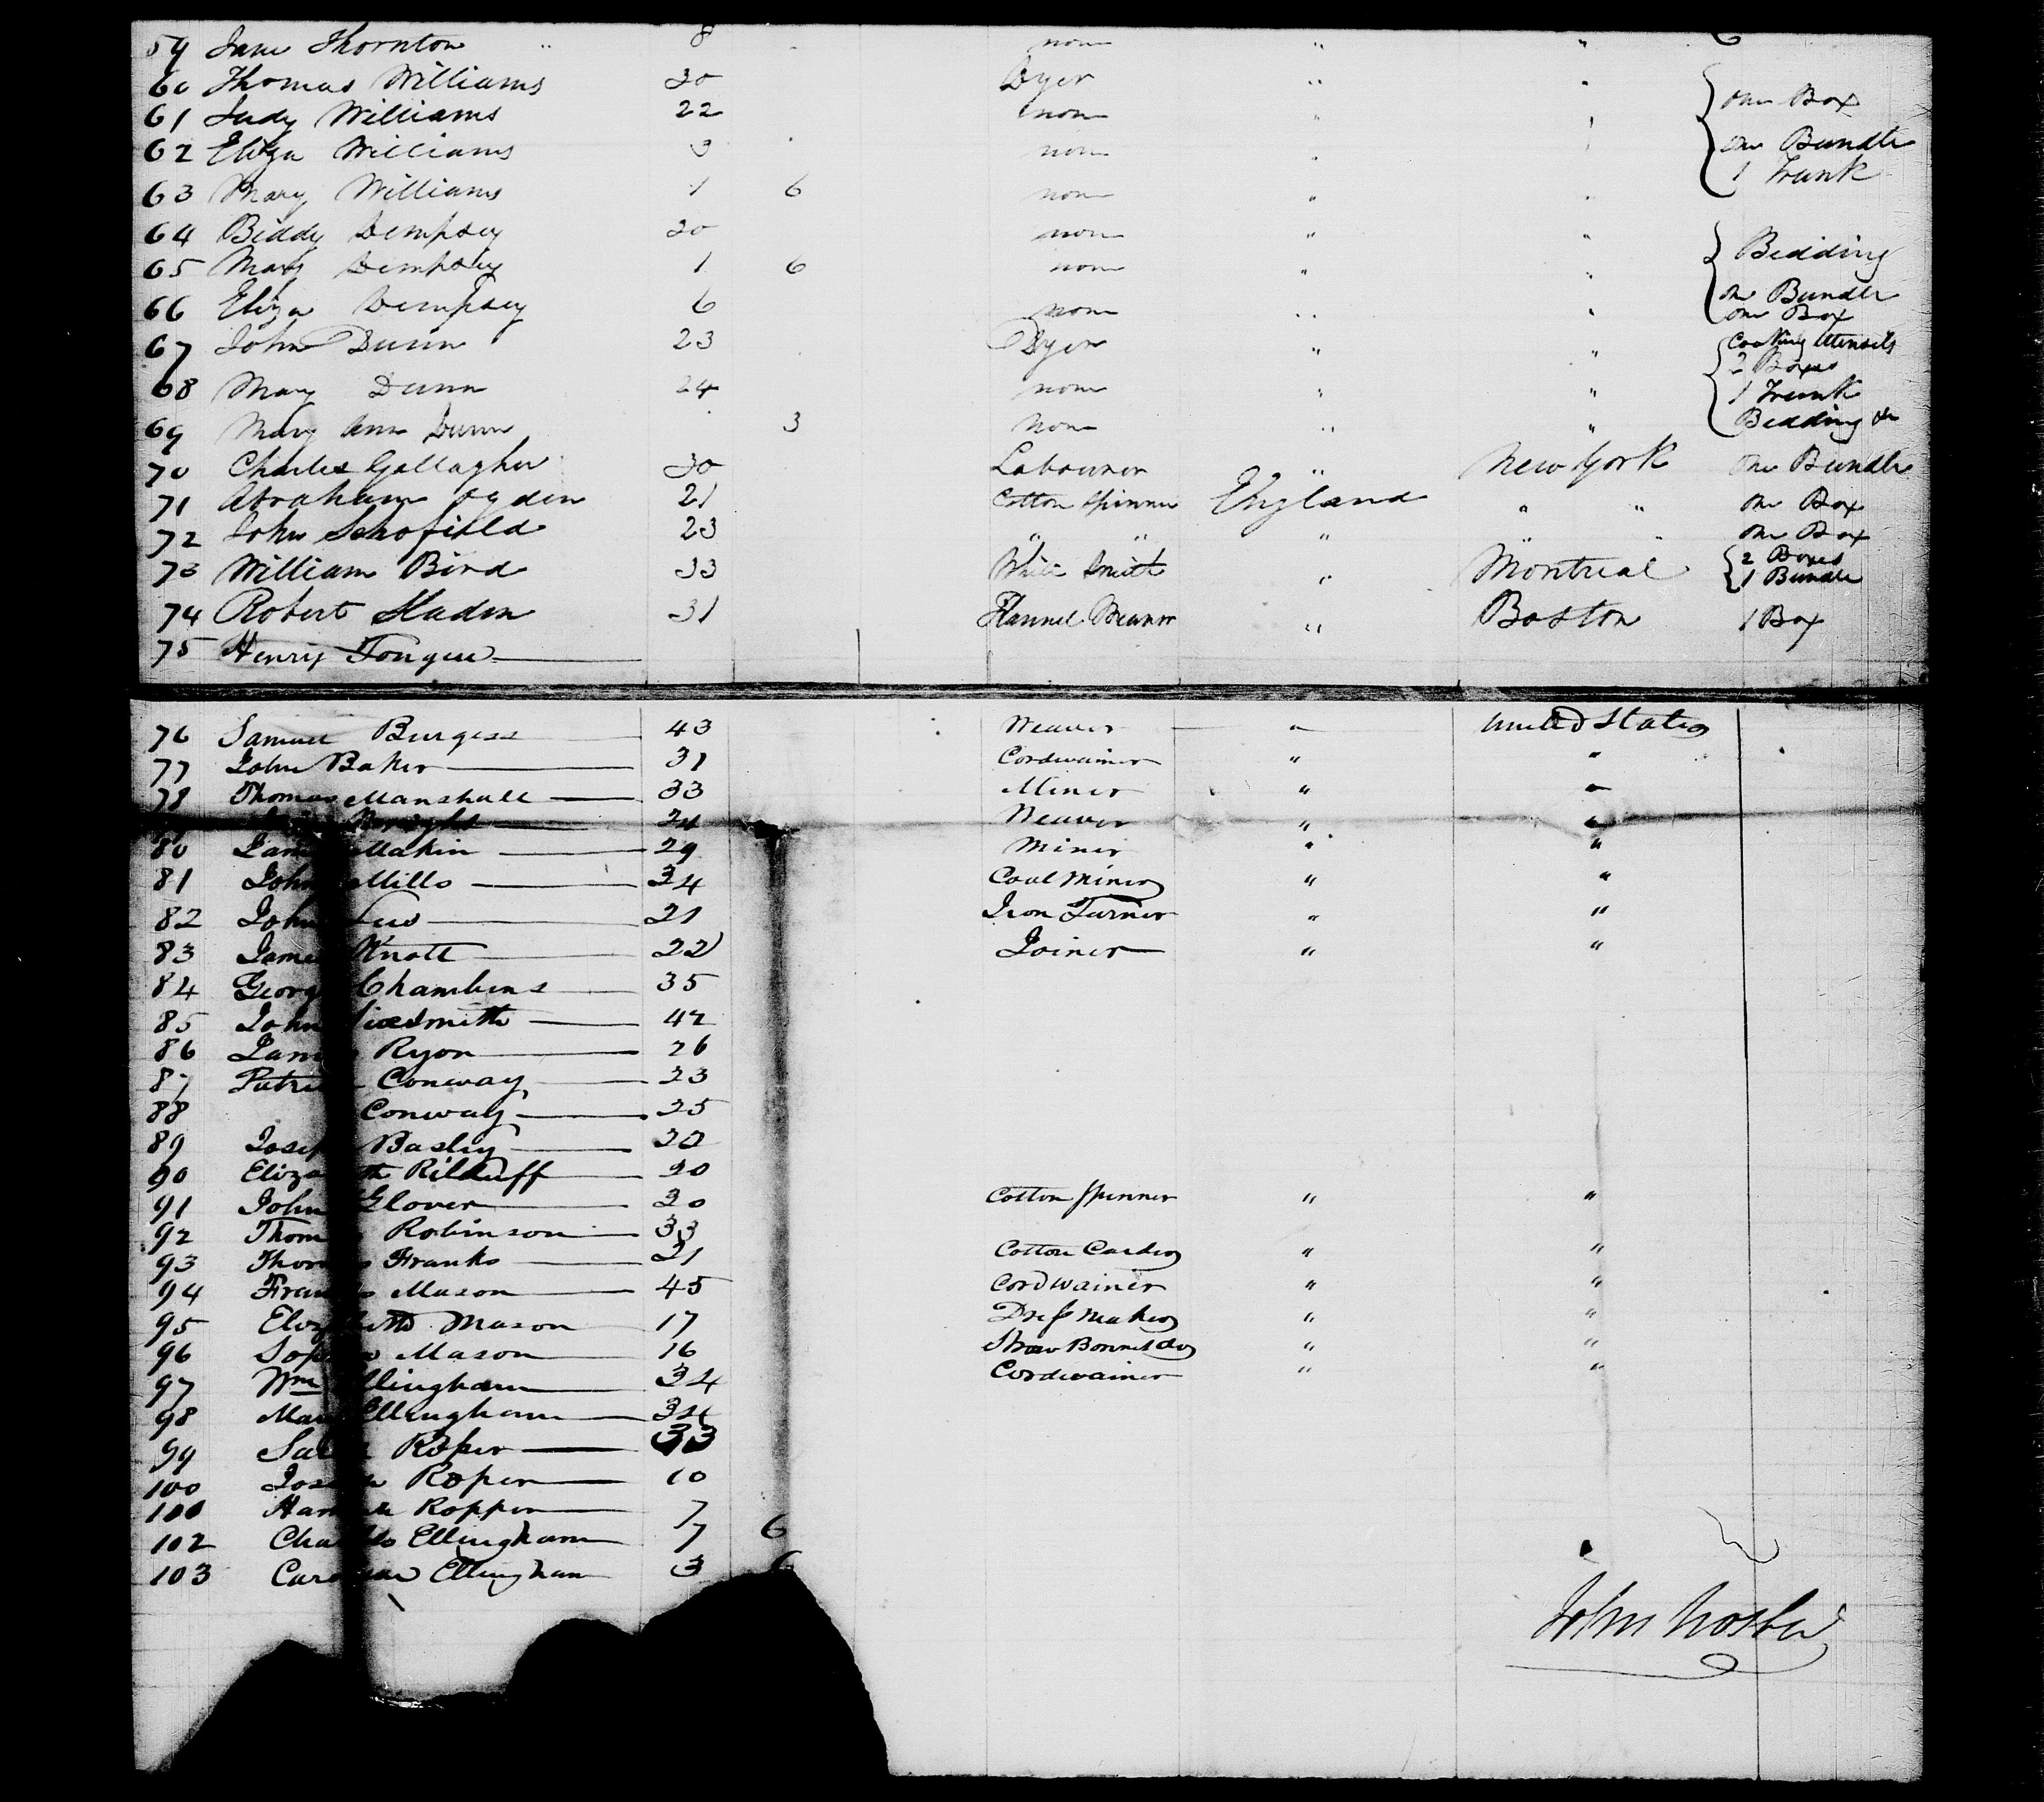 59 Jane Thornton " 8 none " "
60 Thomas Williams 30 Dyer " " one Box
61 Judy Williams 22 none " "
62 Eliza Williams 3 none " " one Bundle
63 Mary Williams 1 6 none " " 1 Trunk
64 Biddy Dempsey 30 none " " Bedding
65 Mary Dempsey 1 6 none " "
66 Eliza Dempsey 6 none " " one Bundle one Box
67 John Dunn 23 Dyer " " Cooking Utensils 2 Boxes
68 Mary Dunn 24 none " " 1 Trunk
69 Mary Ann Dunn 3 None " " Bedding &c
70 Charles Gallagher 30 Labourer " New York One Bundle
71 Abraham Ogden 21 Cotton Spinner England " " One Box
72 John Schofield 23 " " " " " One Box
73 William Bird 33 White Smith " Montreal 2 Boxes 1 Bundle
74 Robert Sladen 31 Flannel Weaver " Boston 1 Box
75 Henry Tongue
76 Samuel Burgess 43 Weaver " United States
77 John Baker 31 Cordwainer " "
78 Thomas Marshall 33 Miner " "
Weaver " "
80 Makin 29 Miner " "
81 John Mills 34 Coal Miner " "
82 John 21 Iron Turner " "
83 James Knott 22 Joiner " "
84 George Chambers 35
85 John 42
86 James Ryon 26
87 Patrick Conway 23
88 Conway 25
89 Joseph Basley 22
90 Elizabeth Kilduff 20
91 John Glover 30 Cotton Spinner " "
92 Thomas Robinson 33
93 Thomas Franks 21 Cotton Carder " "
94 Francis Mason 45 Cordwainer " "
95 Elizabeth Mason 17 Dress Maker " "
96 Sophia Mason 16 Straw Bonnet do " "
97 Wm Ellingham 34 Cordwainer " "
98 Mary Ellingham 34
99 Roper 33
100 Joseph Roper 10
101 Hannah Ropper 7
102 Charles Ellingham 7 6
103 Caroline Ellingham 3 6
John